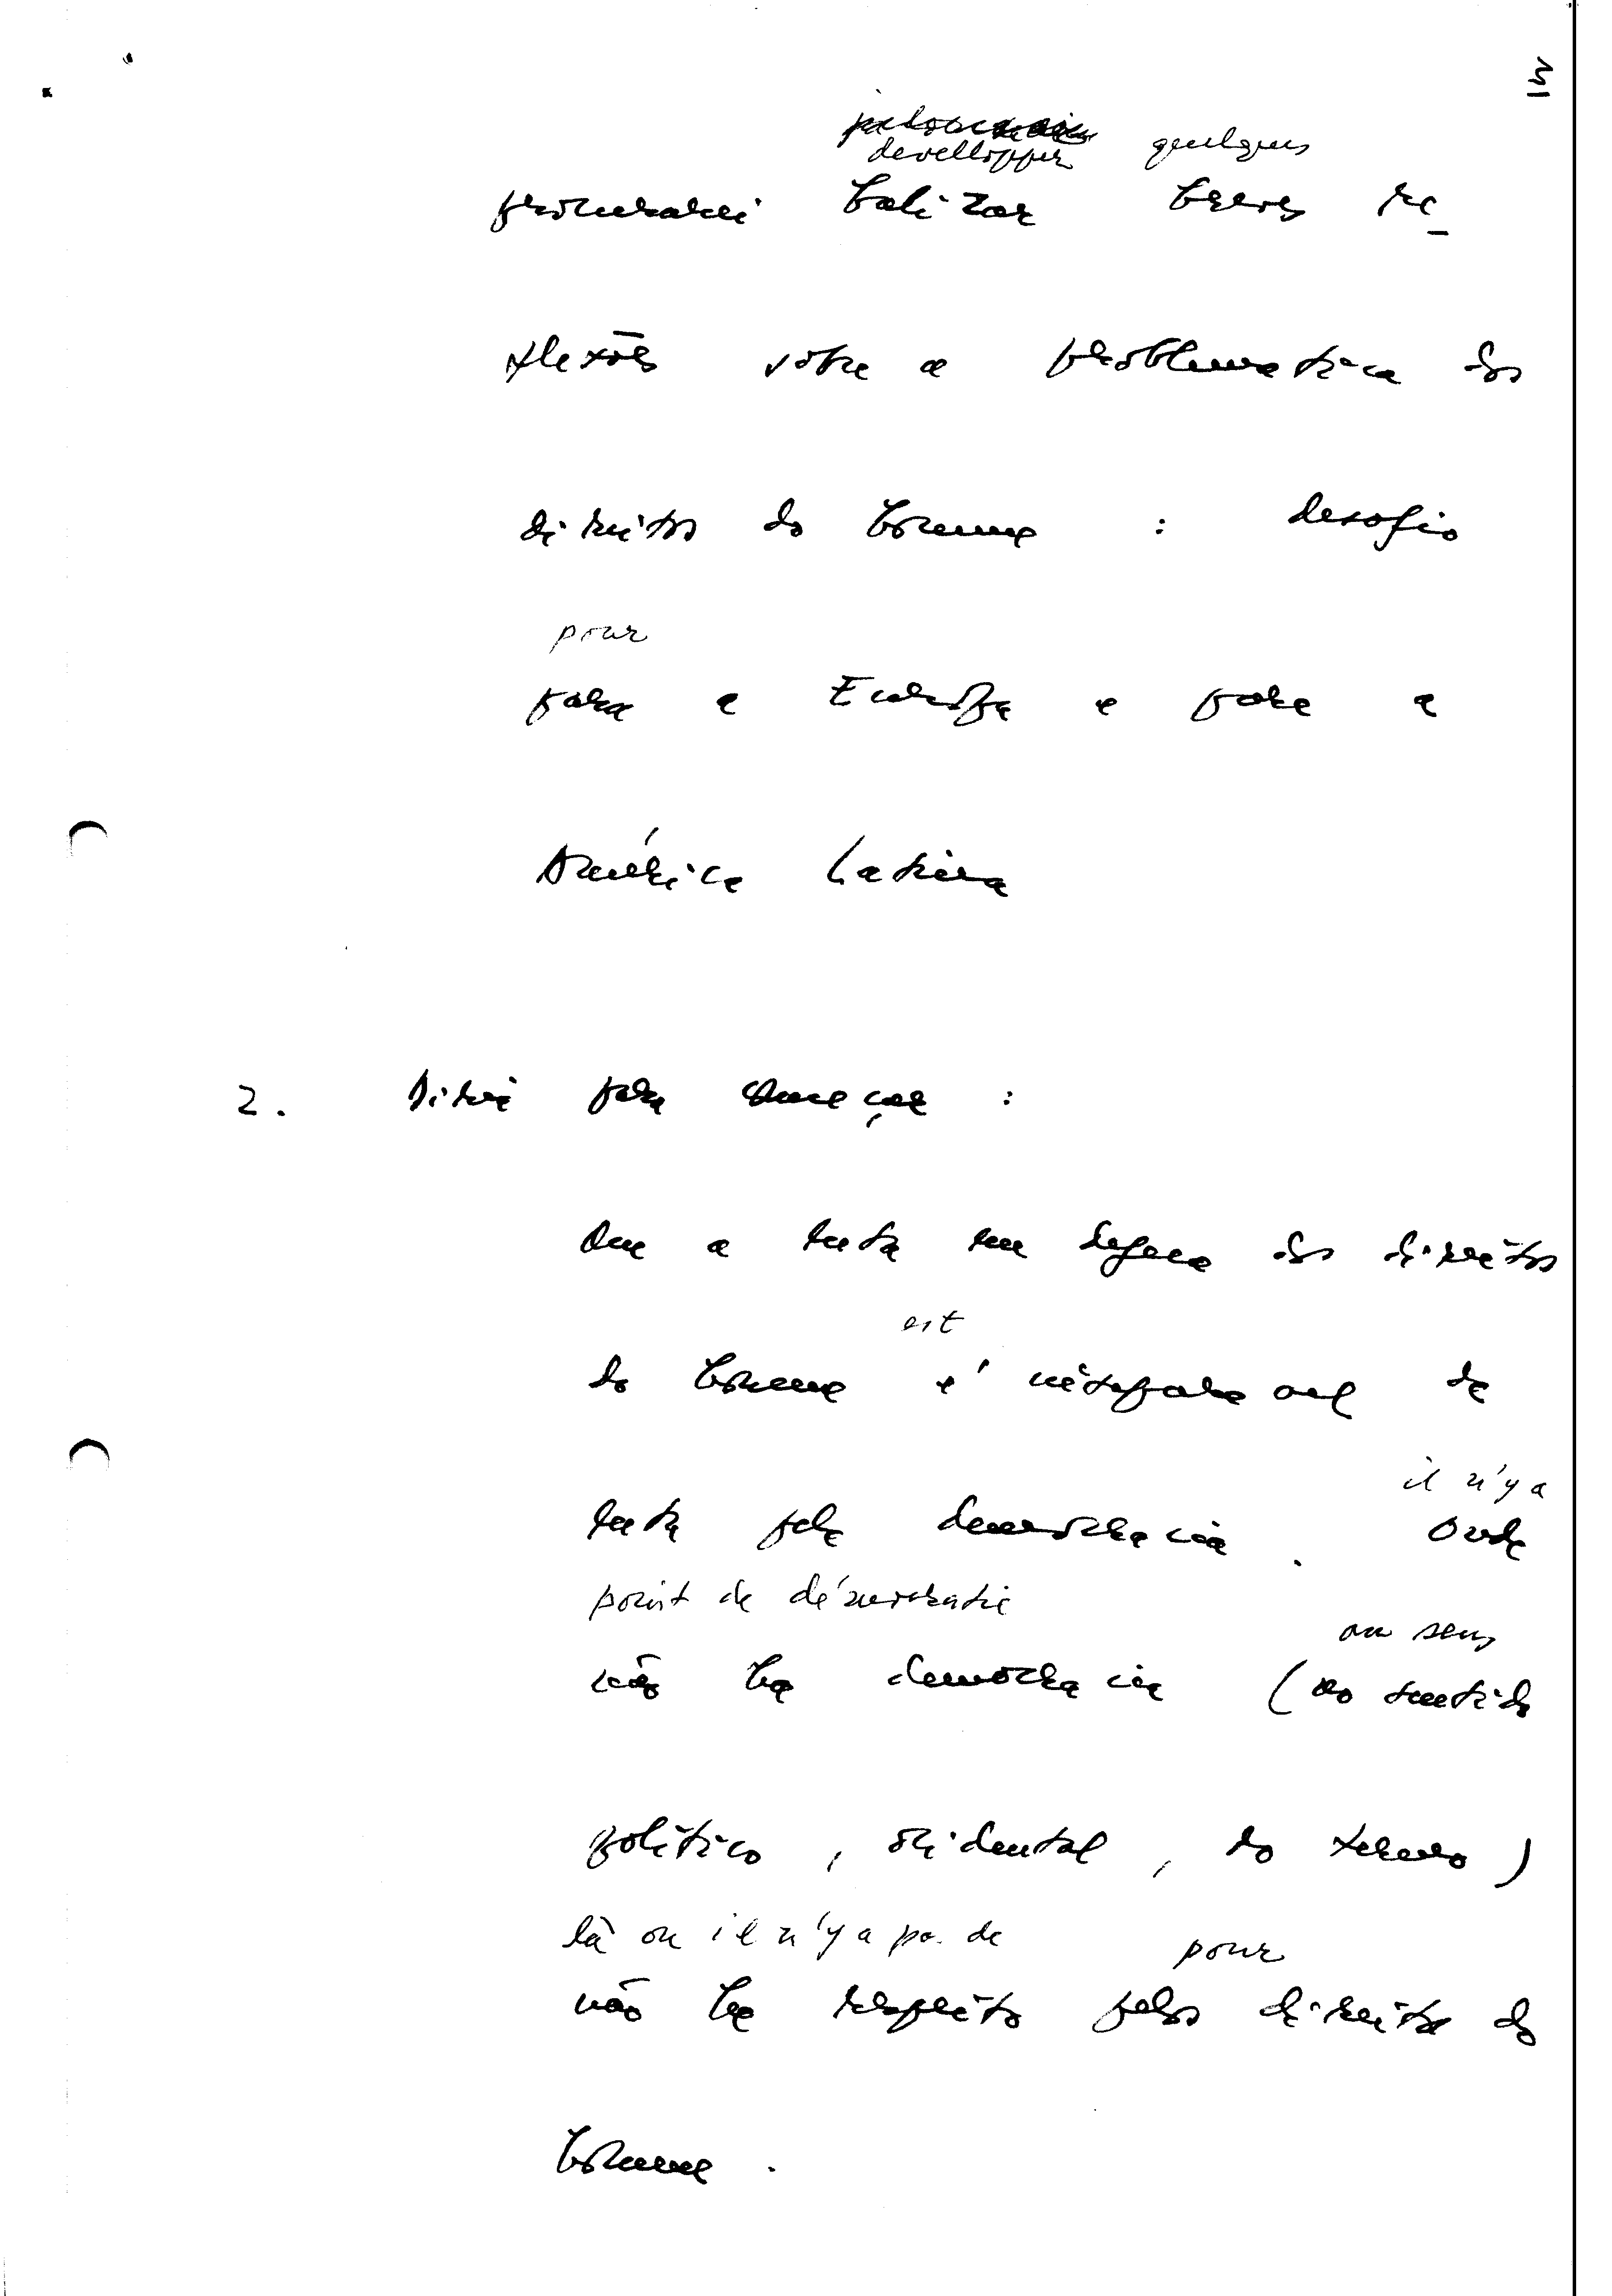 3
developper quelques
procurarei balizar breves re-
flexões sobre a problemática dos
direitos do homem : desafio
pour
para a Europa e para a
América Latina
2. Diria para começar :
Que a luta em defesa dos direitos
est
do homem é inseparavel da
il n'y a
luta pela democracia . Onde
point de démocratie
au sens
não há democracia (no sentido
político , ocidental , do termo )
là ou il n'y a pas de
pour
não há respeito pelos direitos do
homem .